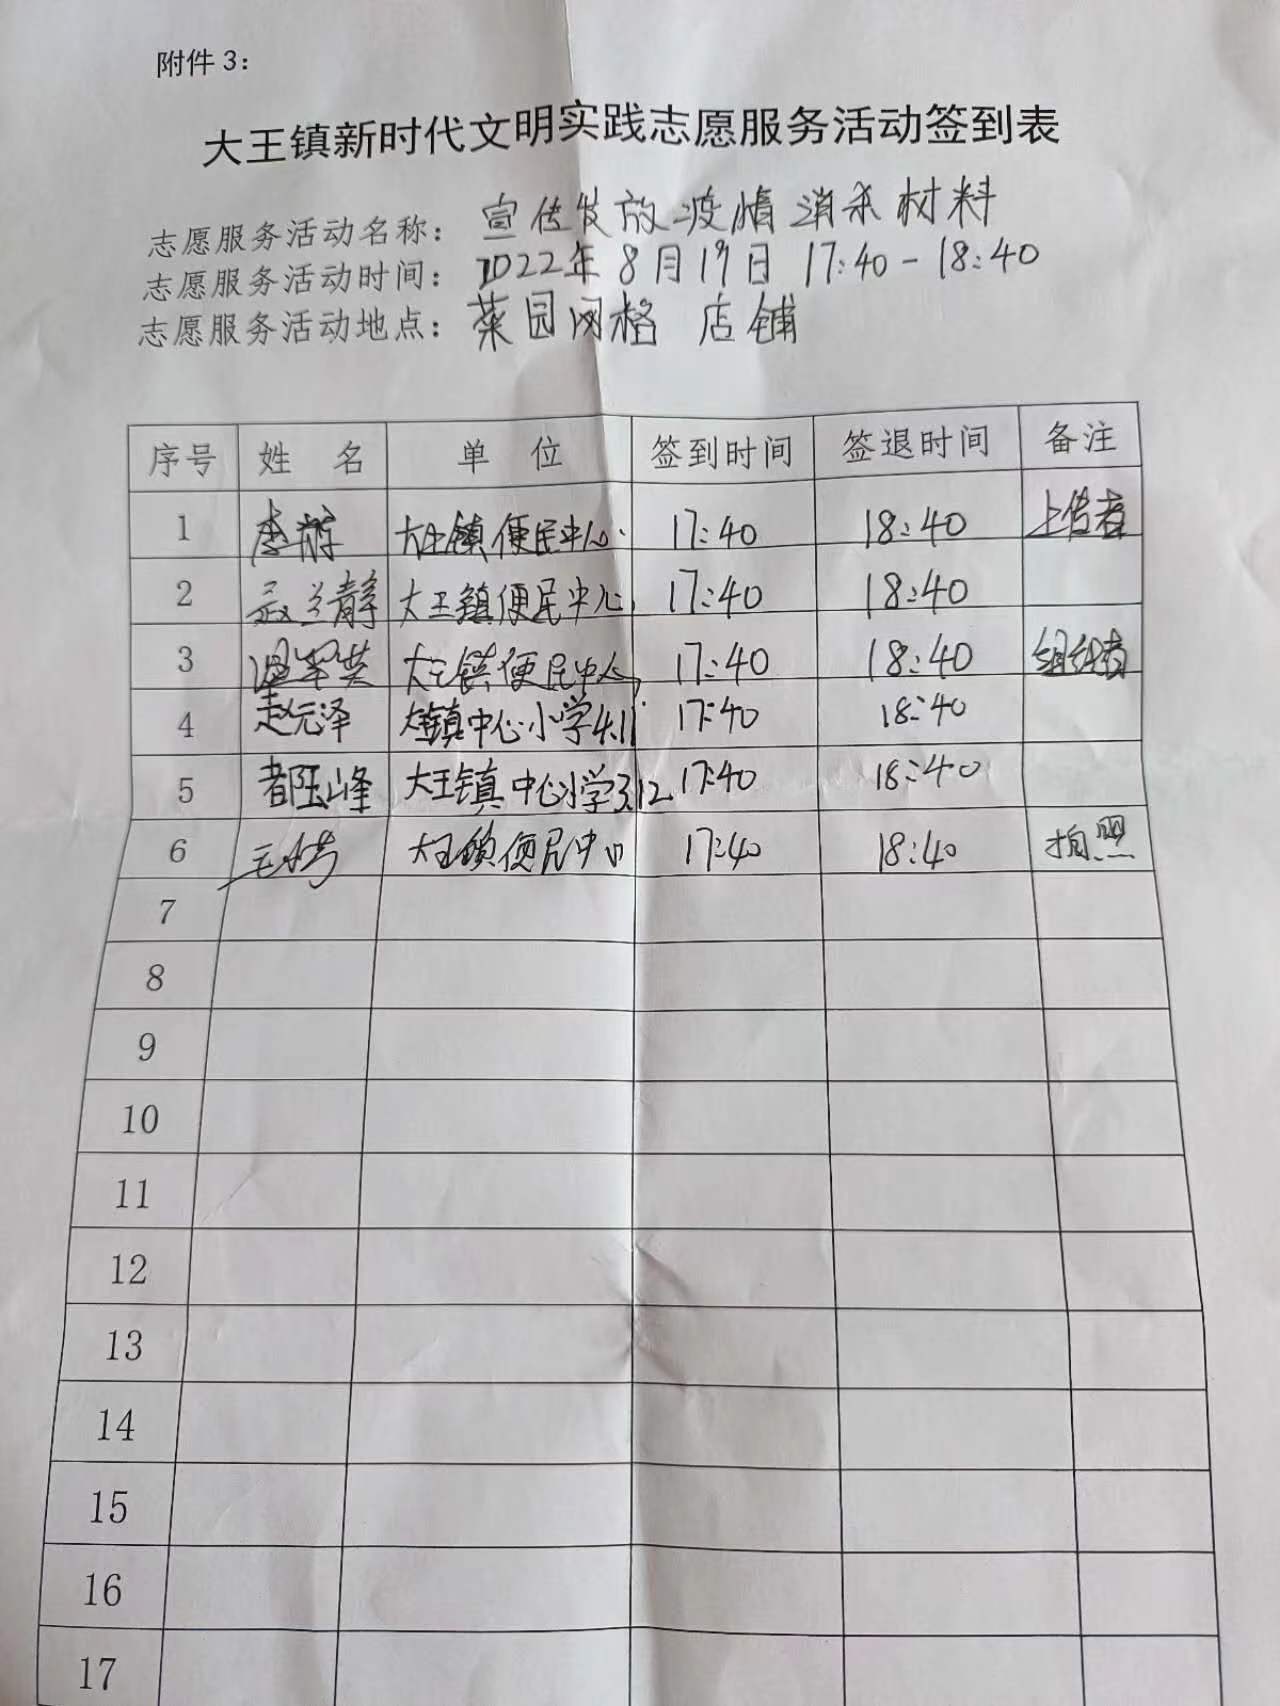 附件3：
大王镇新时代文明实践志愿服务活动签到表
志愿服务活动名称： 宣传发放疫情消杀材料
志愿服务活动时间： 2022年8月19日 17:40-18:40
志愿服务活动地点： 菜园网格 店铺
序号 姓名 单位 签到时间 签退时间 备注
1 李 大王镇便民中心 17:40 18:40 上传者
2 兰静 大王镇便民中心 17:40 18:40
3 大王镇便民中心 17:40 18:40 组织者
4 赵元泽 大王镇中心小学4.11 17:40 18:40
5 都玉峰 大王镇中心小学3.12 17:40 18:40
6 王 大王镇便民中心 17:40 18:40 拍照
7
8
9
10
11
12
13
14
15
16
17